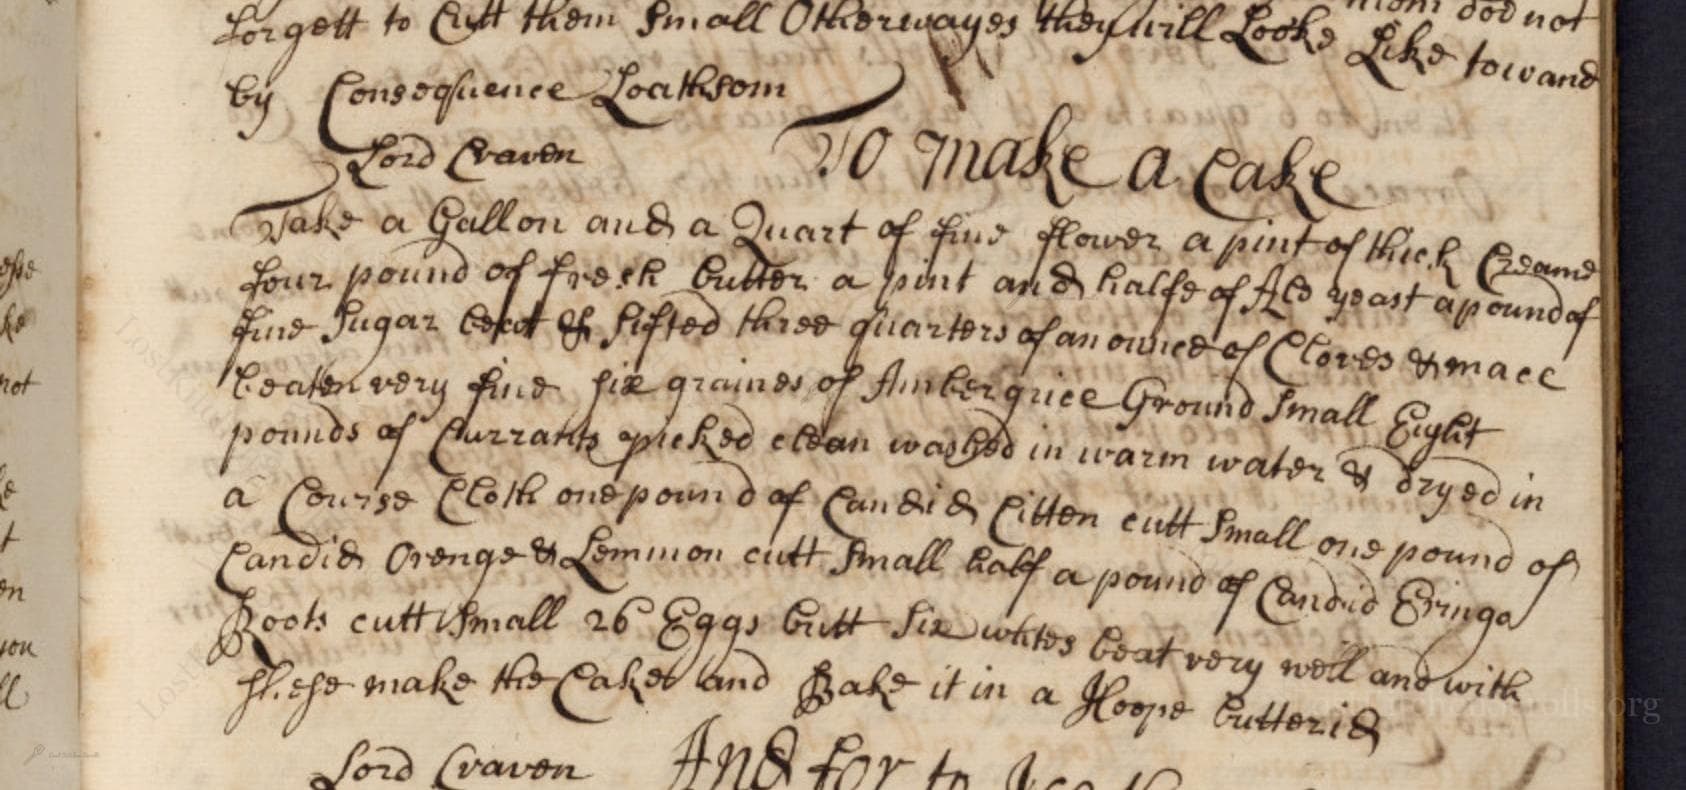 them doe not
forgett to Cutt them Small Otherwayes they will Looke Like tow and
by Consequence Loathsom
Lord Craven To make a Cake
Take a Gallon and a Quart of fine flower a pint of thick Creame
four pound of fresh butter a pint and halfe of Ale yeast a pound of
fine Sugar beat & sifted three quarters of an ounce of Cloves & mace
beaten very fine six graines of Ambergrice Ground Small Eight
pounds of Currants picked clean washed in warm water & dryed in
a Course Cloth one pound of Candid Citten cutt Small one pound of
Candid Orenge & Lemmon cutt Small half a pound of Candid Eringo
Roots cutt Small 26 Eggs butt six whites beat very well and with
these make the Cake and Bake it in a Hoope butterid
Lord Craven And for to Ice